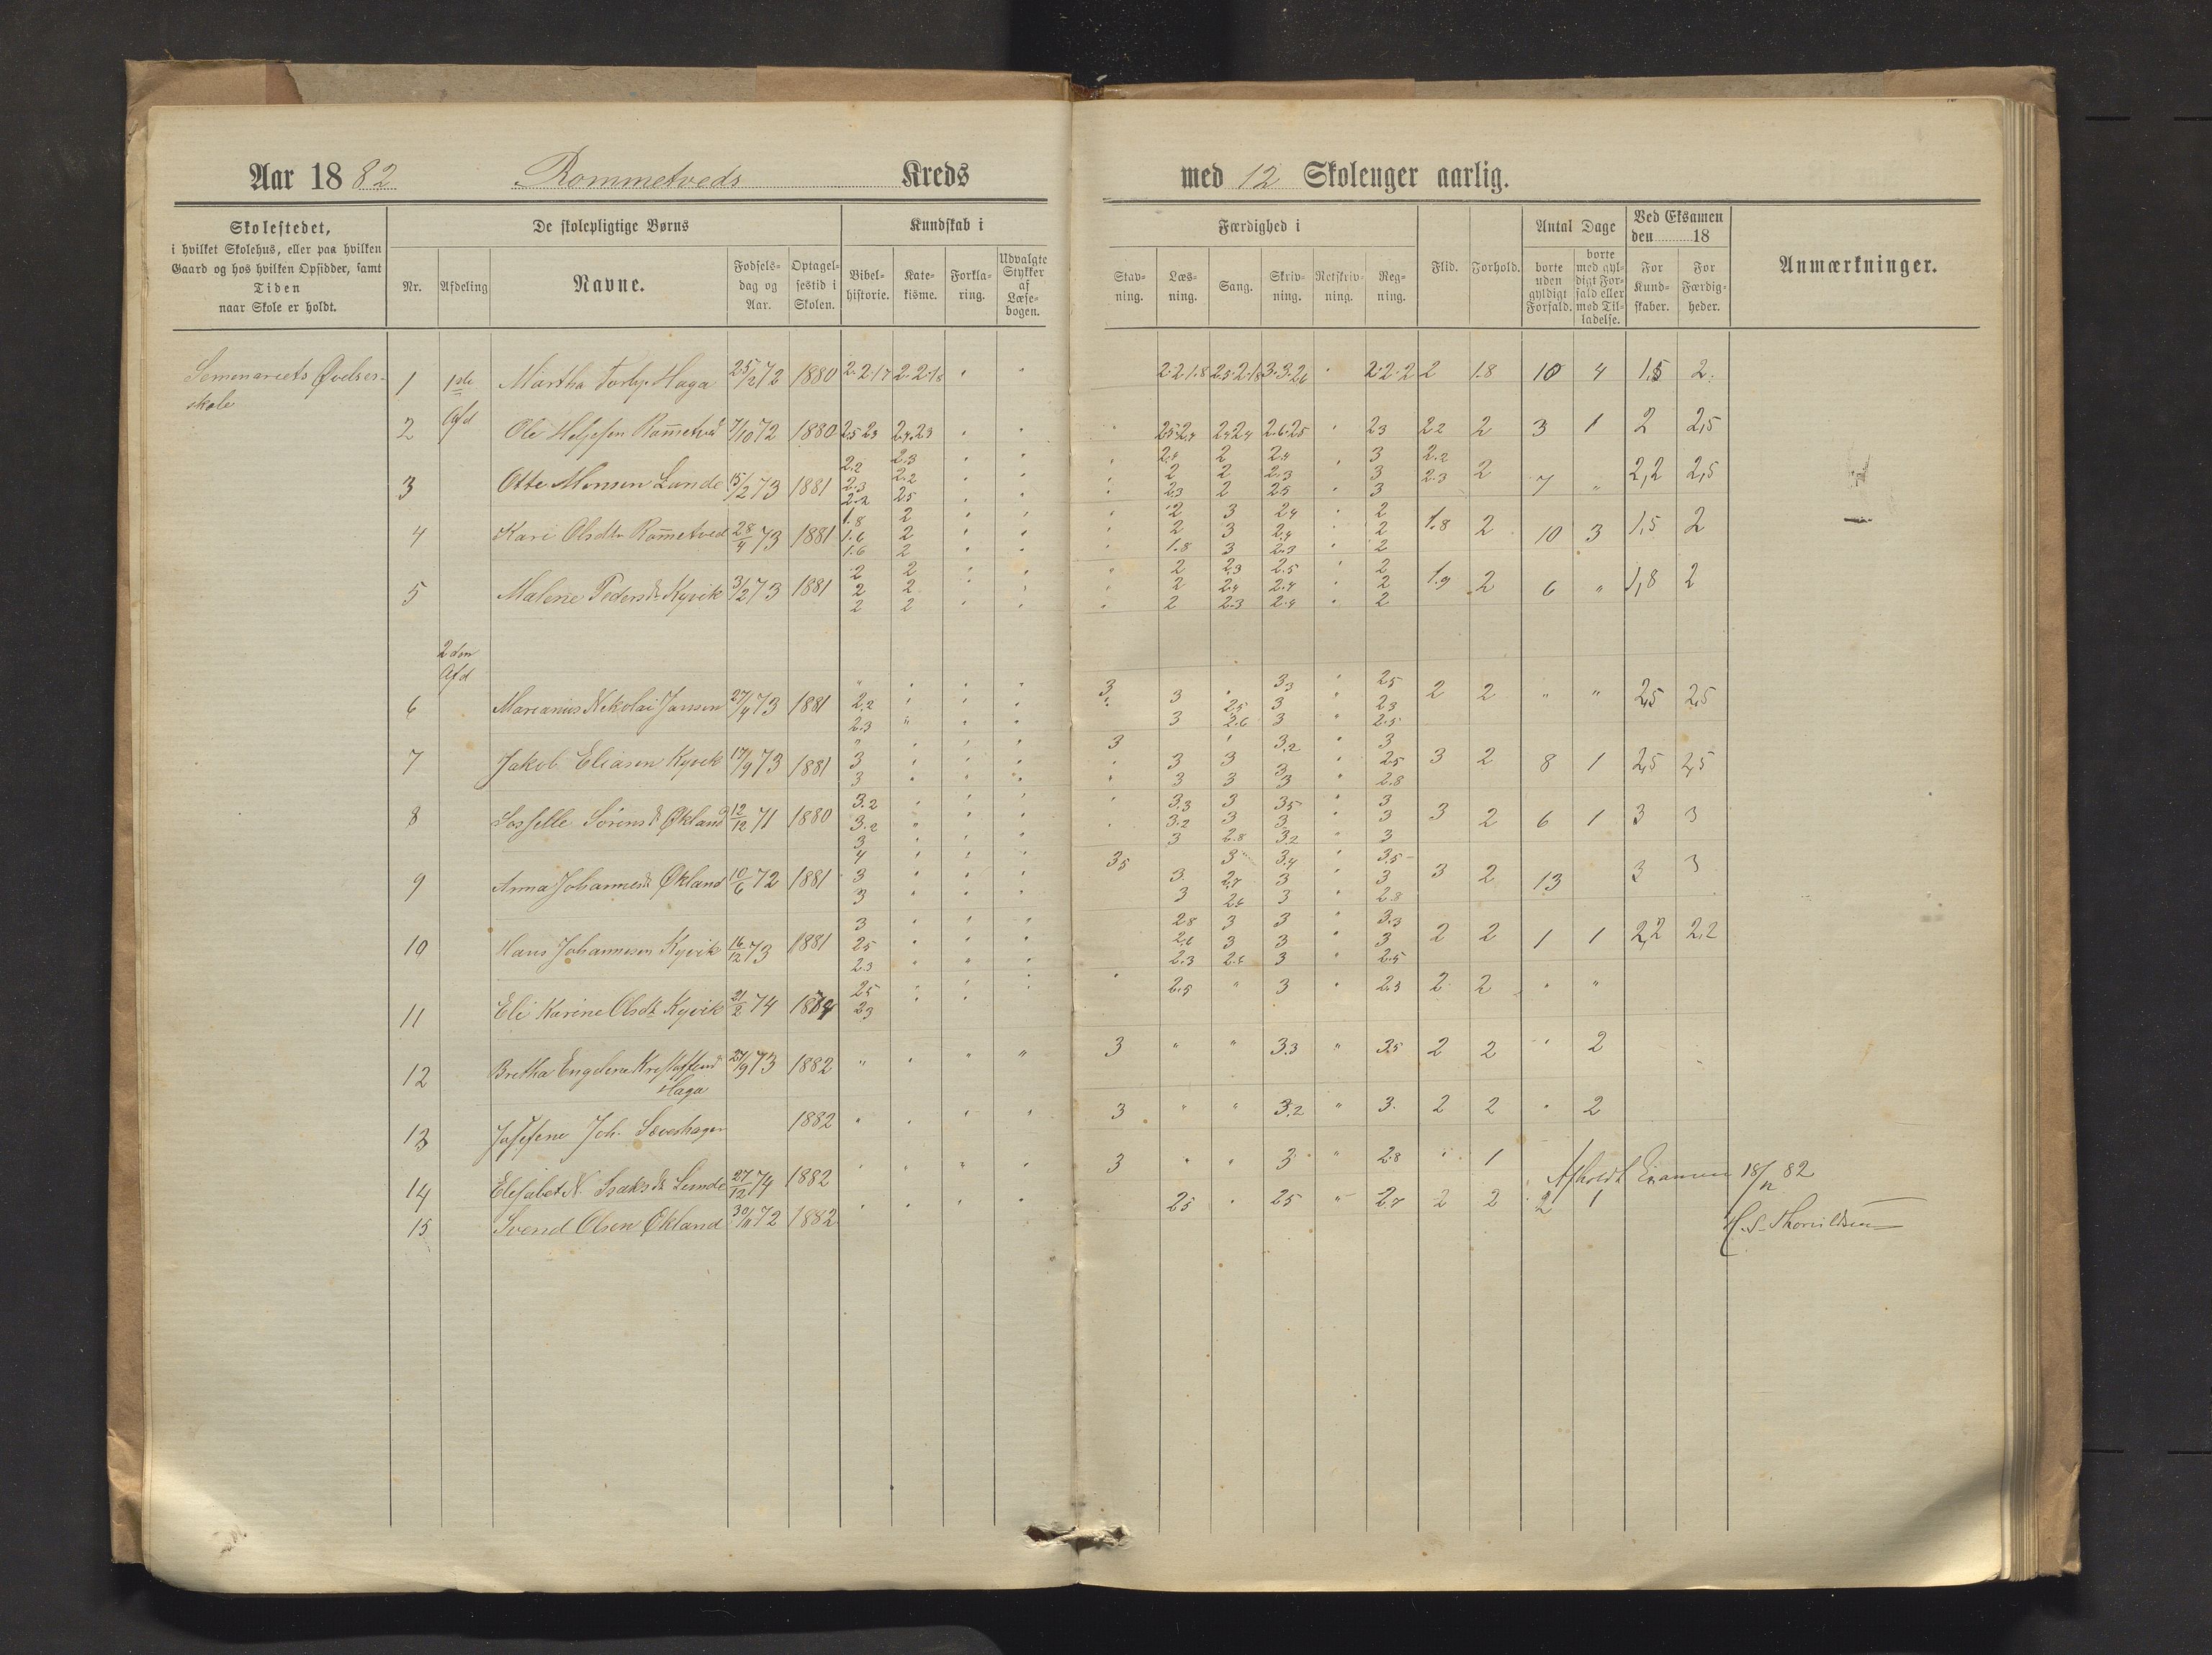 Aar 1882 Rommetveds Kreds med 12 Skoleuger aarlig.
Skolestedet, i hvilket Skolehus, eller paa hvilken Gaard og hos hvilken Opsidder, samt Tiden naar Skole er holdt.
De skolepligtige Børns
Nr. Afdeling Navne. Fødselsdag og Aar. Optagelsestid i Skolen.
Kundskab i
Bibelhistorie. Katekisme. Forklaring. Udvalgte Stykker af Læsebogen.
Færdighed i
Stavning. Læsning. Sang. Skrivning. Retskrivning. Regning.
Flid. Forhold.
Antal Dage
borte uden gyldigt Forfald. borte med gyldigt Forfald eller med Tilladelse.
Ved Eksamen den 18
For Kundskaber. For Færdigheder.
Anmærkninger.
Semenariets Øvelsesskole
1 1ste Martha Torbj. Haga 25/2 72 1880 2.2.17 2.2.18 " " 2.2.1.8 2.5.2.18 3.3.26 " 2.2.2 2 1.8 10 4 1.5 2.
2 Afd Ole Helgesen Rommetvd 7/10 72 1880 25 23 24.23 " " " 25.24 24 24 2.6.25 " 23 22 2 3 1 2 2,5
3 Otte Monsen Lunde 15/2 73 1881 2.2 2.3 2.2 2.3 2.2 25 " " " 2.4 2 23 2 2 2 24 2.3 25 " 3 3 3 2.2 2.3 2 7 " 2,2 2,5
4 Kari Olsdtr Rommetved 28/4 73 1881 1.8 1.6 1.6 2 2 2 " " " 2 2 1.8 3 3 3 24 24 2.3 " 2 2 2 1.8 2 10 3 1,5 2
5 Malene Pedersdr Kyvik 3/2 73 1881 2 2 2 2 2 2 " " " 2 2 2 2.3 2.4 2.3 2.5 2.4 2.4 " 2 2 2 1.9 2 6 " 1,8 2
2den Afd
6 Marianus Nikolai Jansen 27/4 73 1881 " 2.2 2.3 " " " 3 3 3 " 2.5 2.6 3.3 3 3 " 25 23 2.5 2 2 " " 2,5 2,5
7 Jakob Eliasen Kyvik 17/9 73 1881 " 3 3 " " " 3 3 3 " 3 3 3.2 3 3 " 3 25 2.8 3 2 8 1 2,5 2,5
8 Sørens dr Økland 12/12 71 1880 3.2 3.2 3 " " " " 3.3 3.2 3 3 3 2.8 35 3 3.2 " 3 3 3 3 2 6 1 3 3
9 Anna Johannesdr Økland 10/6 72 1881 4 3 3 " " " 35 3 3 3 2.7 2.6 3.4 3 3 " 3.5 3 2.8 3 2 13 3 3
10 Hans Johannesen Kyvik 16/12 73 1881 3 25 2.3 " " " 28 2.6 2.3 3 3 2.6 3 3 3 " 3.3 3 2.5 2 2 1 1 2,2 2,2
11 Eli Karine Olsdr Kyvik 21/2 74 25 23 " " " " 2.5 " 3 " 2.3 2 2 " "
12 Bretha Engelena Haga 27/9 73 1882 " " " " 3 " " 3.3 " 3.5 2 2 " 2
13 Josefene Joh. Sæveshagen 1882 " " " " 3 " " 3.2 " 3. 2 2 " 2
14 Elisabet N. Isaksdr Lunde 27/12 74 1882 " " " " 3 " " 3 " 2.8 " 1
15 Svend Olsen Økland 30/11 72 1882 " " " " 25 " 25 " 2.7 2 2 2 1
Afholdt Examen 18/12 82
H. S. Thorvildsen